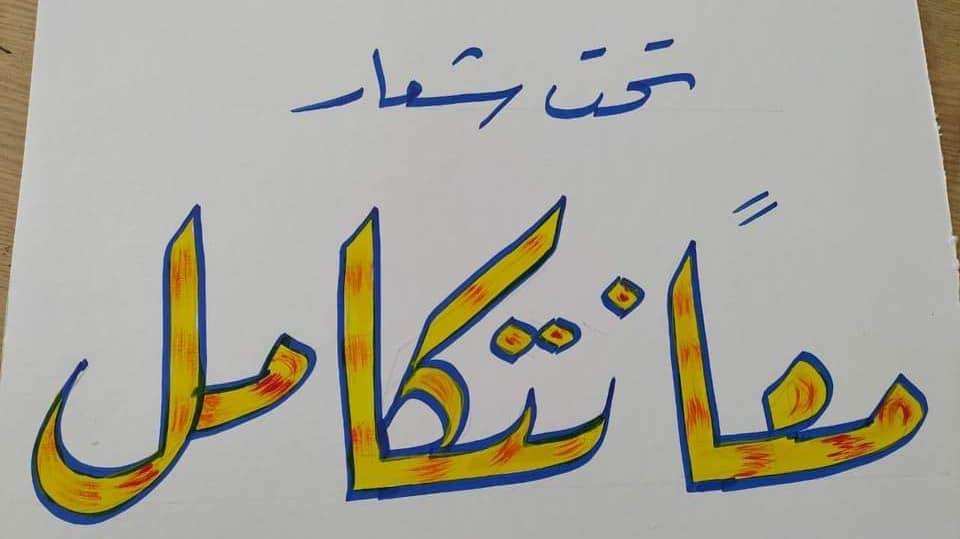 تحت شعار
معاً نتكامل